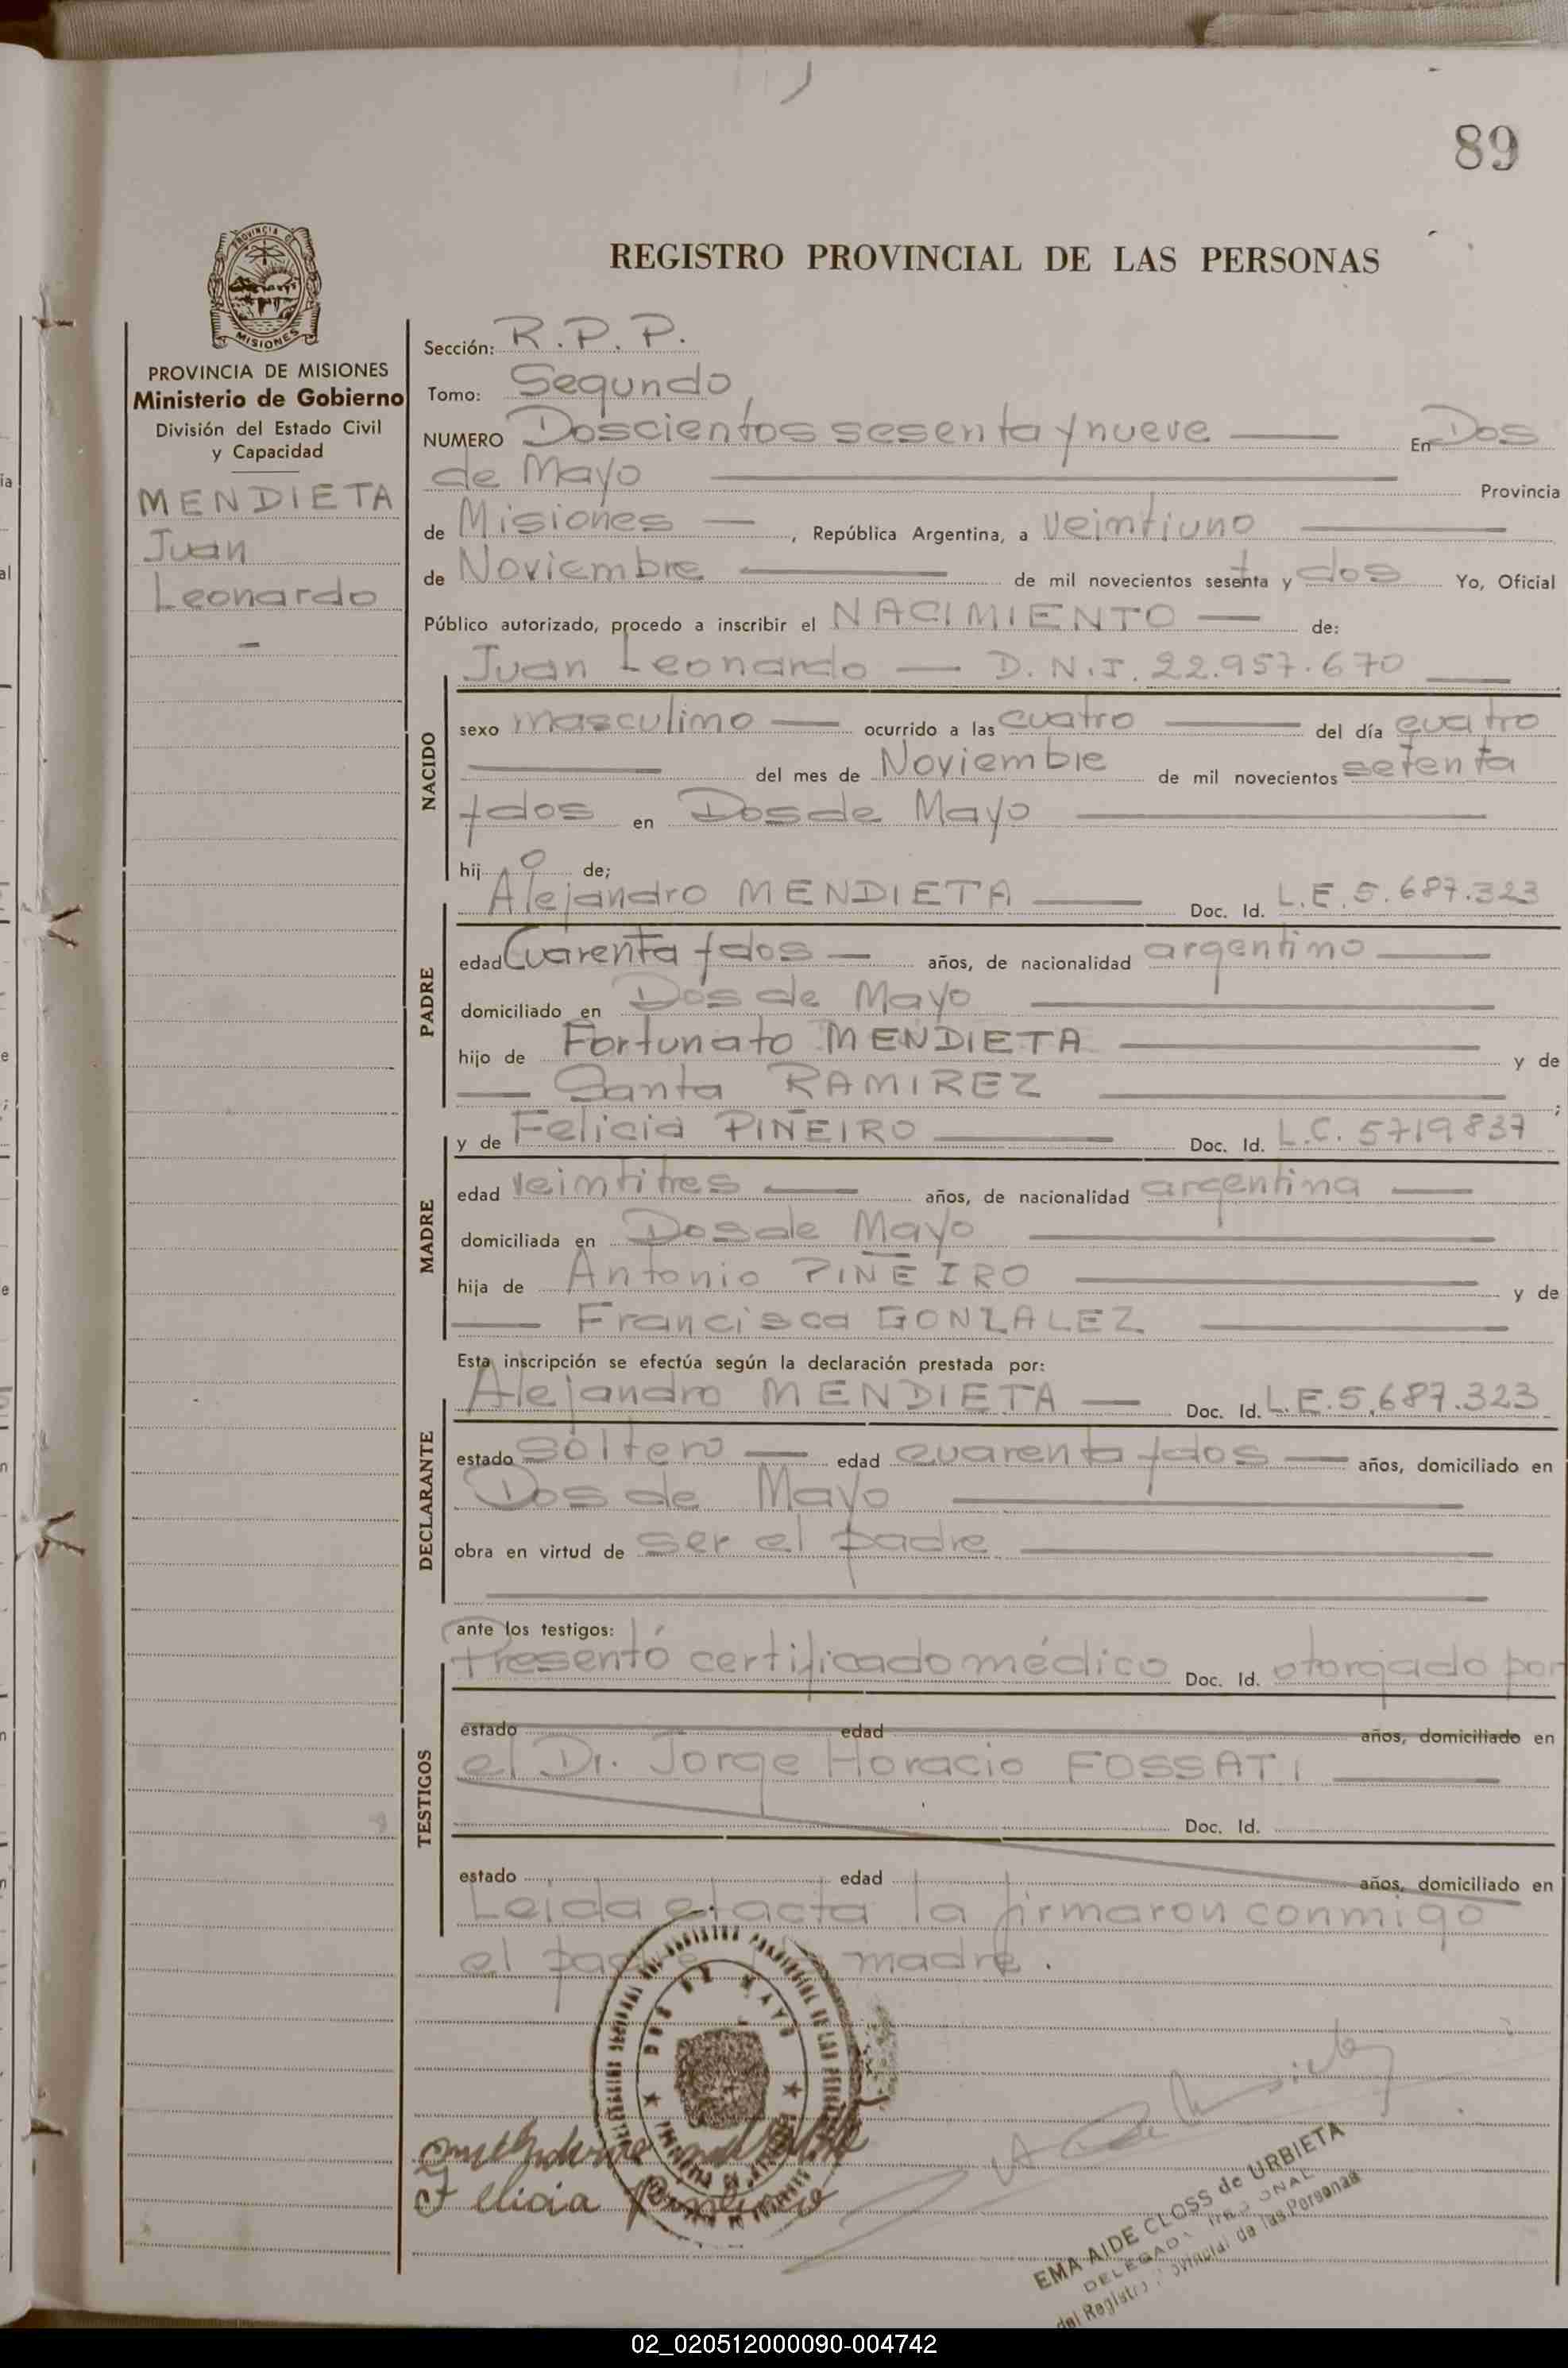 89
REGISTRO PROVINCIAL DE LAS PERSONAS
PROVINCIA DE
MISIONES
PROVINCIA DE MISIONES
Ministerio de Gobierno
División del Estado Civil
y Capacidad
MENDIETA
Juan
Leonardo
Sección: R.P.P.
Tomo: Segundo
NUMERO Doscientos sesenta y nueve En Dos
de Mayo Provincia
de Misiones, República Argentina, a veintiuno
de Noviembre de mil novecientos sesenta y dos Yo, Oficial
Público autorizado, procedo a inscribir el NACIMIENTO de:
Juan Leonardo — D.N.I. 22.957.670
NACIDO
sexo masculino ocurrido a las cuatro del día cuatro
del mes de Noviembre de mil novecientos setenta
y dos en Dos de Mayo
hijo de;
Alejandro MENDIETA Doc. Id. L.E. 5.687.323
PADRE
edad Cuarenta y dos años, de nacionalidad argentino
domiciliado en Dos de Mayo
hijo de Fortunato MENDIETA y de
Santa RAMIREZ ;
y de Felicia PIÑEIRO Doc. Id. L.C. 5719837
MADRE
edad veintitres años, de nacionalidad argentina
domiciliada en Dos de Mayo
hija de Antonio PIÑEIRO y de
Francisca GONZALEZ
Esta inscripción se efectúa según la declaración prestada por:
Alejandro MENDIETA Doc. Id. L.E. 5.687.323
DECLARANTE
estado soltero edad cuarenta y dos años, domiciliado en
Dos de Mayo
obra en virtud de ser el padre
ante los testigos:
Presentó certificado médico Doc. Id. otorgado por
TESTIGOS
estado edad años, domiciliado en
el Dr. Jorge Horacio FOSSATI
Doc. Id.
estado edad años, domiciliado en
Leida el acta la firmaron conmigo
el padre madre.
DOS DE MAYO
Felicia
EMA AIDE CLOSS de URBIETA
DELEGADA
del Registro Provincial de las Personas
02_020512000090-004742